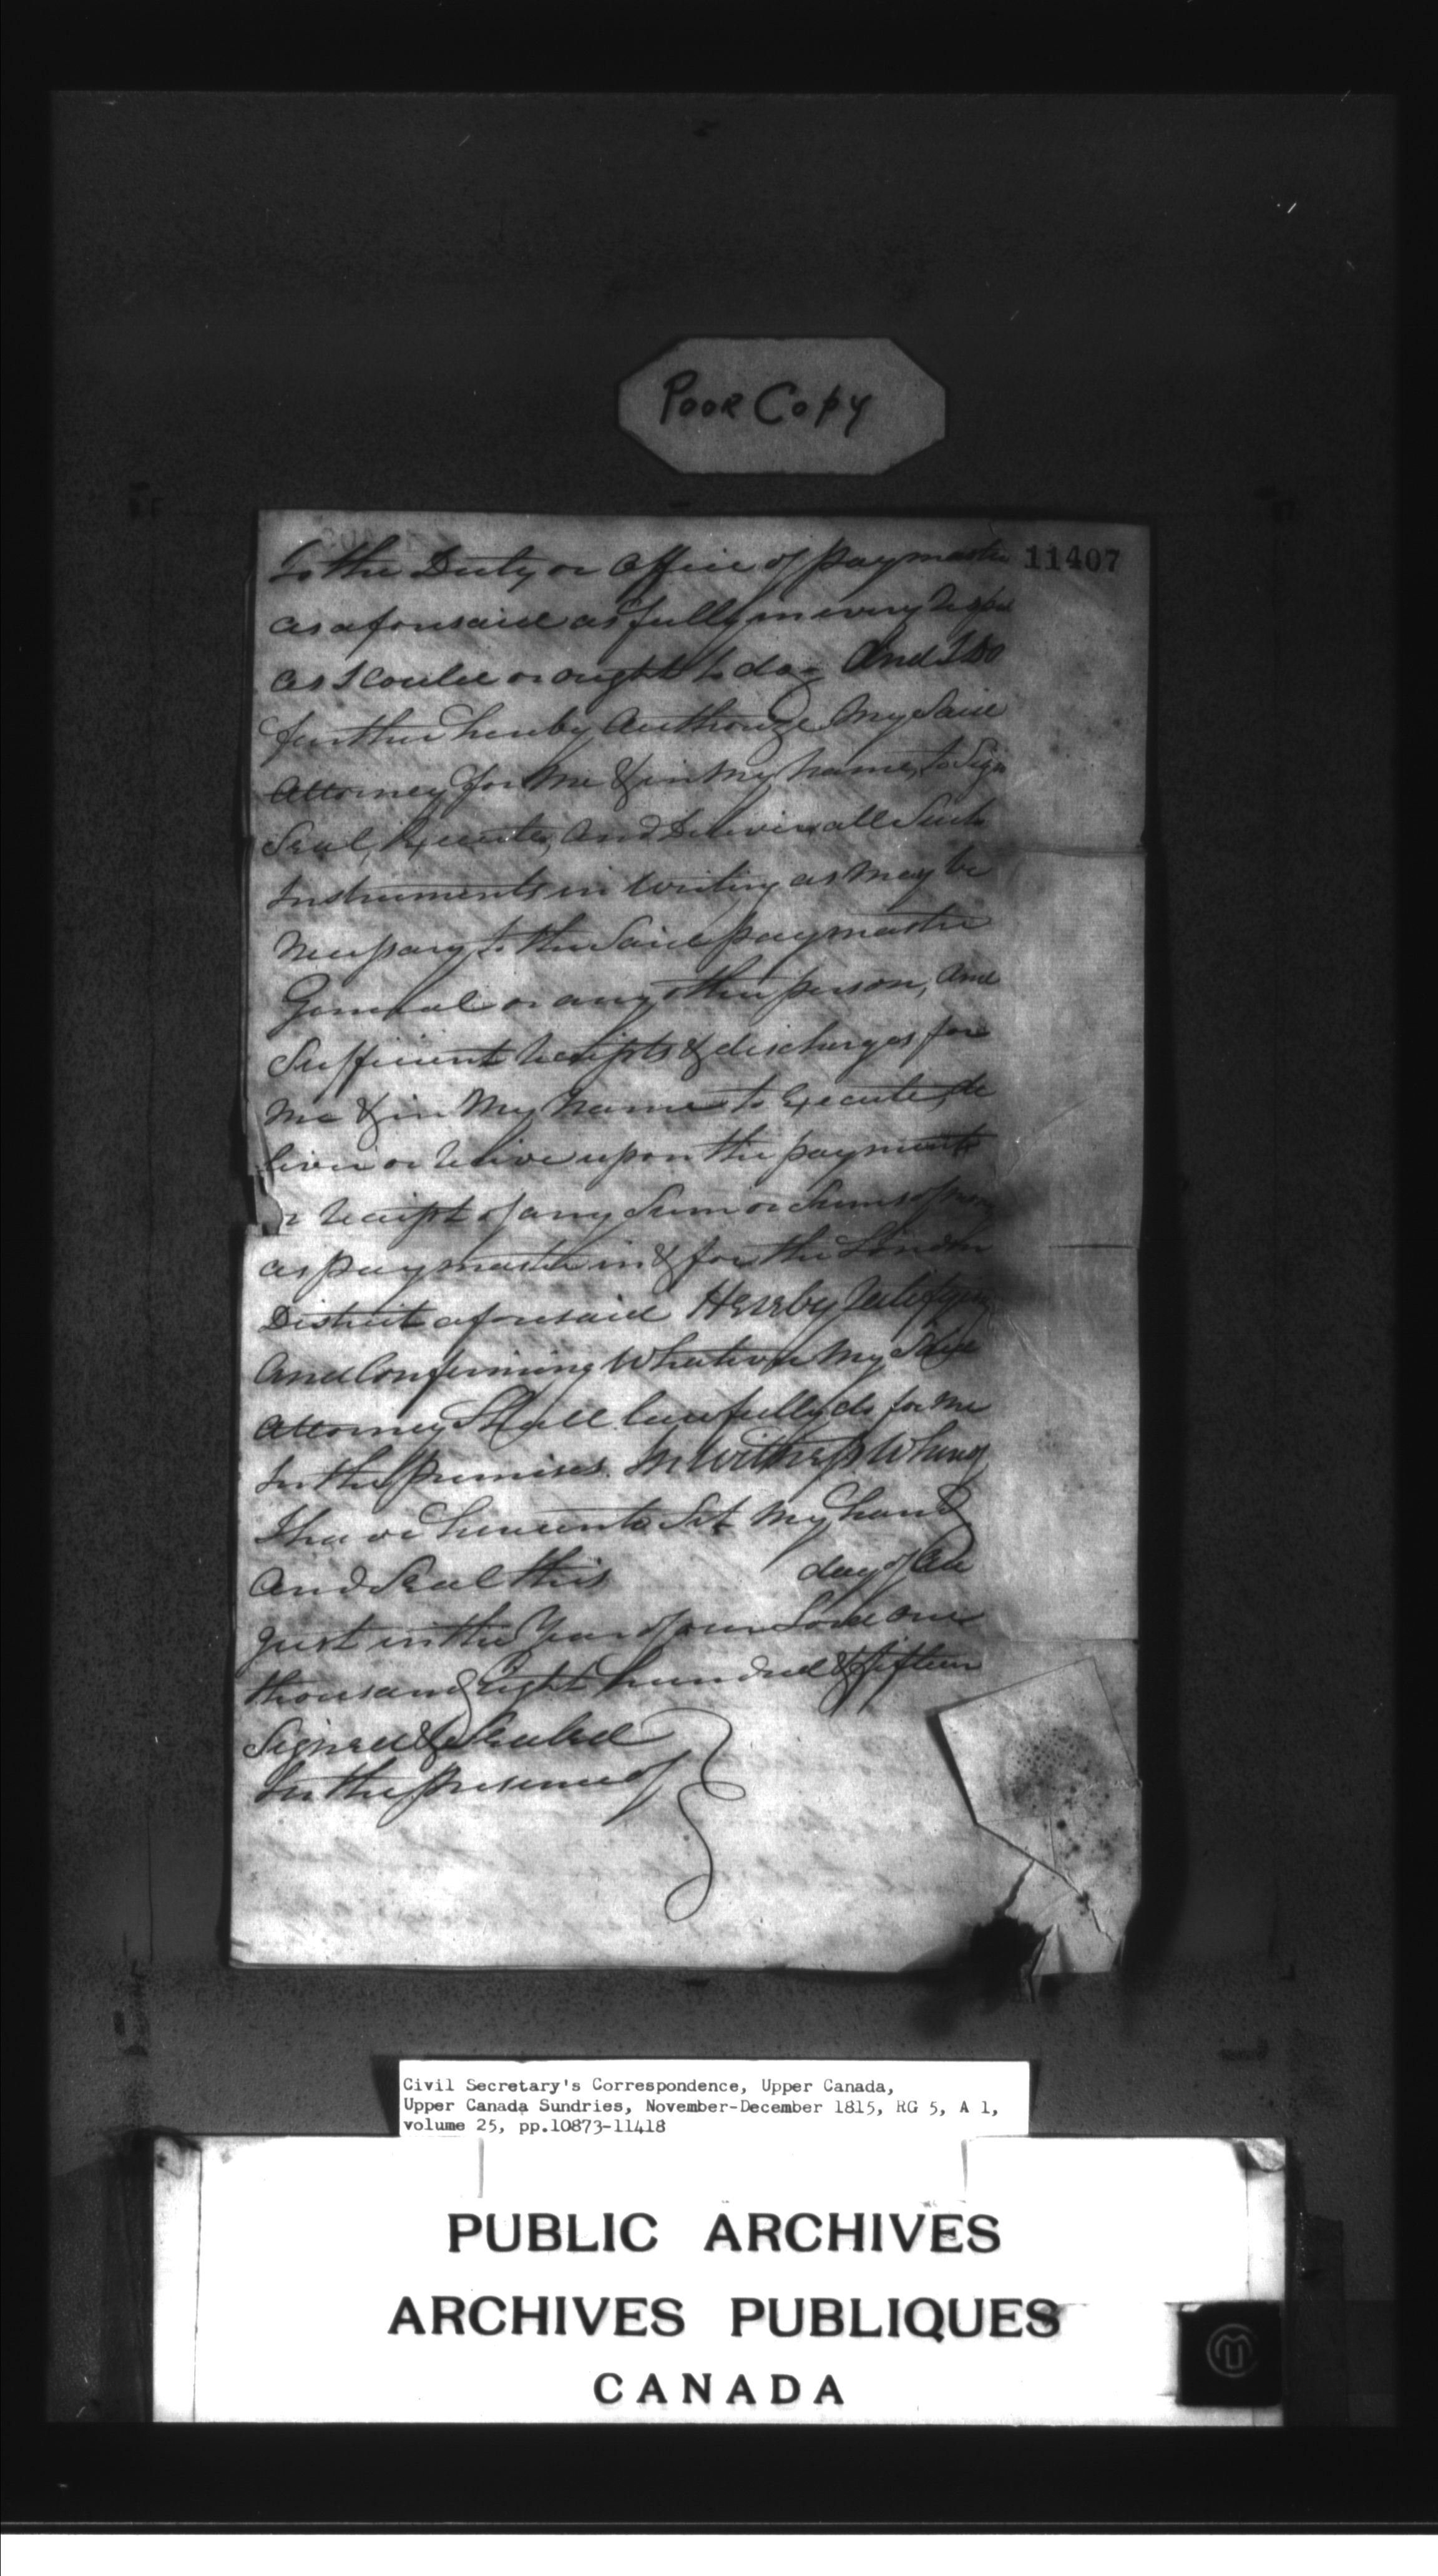 Poor Copy
11407
to the Duty or office of paymaster
as aforesaid as fully in every Respect
as I could or ought to do, And I Do
further hereby Authorize My Said
Attorney for Me & in My Name, to Sign
Seal, Execute, And Deliver all Such
Instruments in Writing as May be
Necessary to the Said paymaster
General or any other person, And
Sufficient Receipts & discharges for
Me & in My Name to Execute, de
liver or Receive upon the payment
or Receipt of any Sum or Sums of
as paymaster in & for the London
District aforesaid Hereby Ratifying
And Confirming Whatever My Said
Attorney Shall lawfully do for Me
In the premises. In Witness Whereof
I have hereunto Set My hand
And Seal this day of Au
gust in the Year of our Lord One
thousand Eight hundred & fifteen
Signed & Sealed
In the presence of
Civil Secretary's Correspondence, Upper Canada,
Upper Canada Sundries, November-December 1815, RG 5, A 1,
volume 25, pp.10873-11418
PUBLIC ARCHIVES
ARCHIVES PUBLIQUES
CANADA